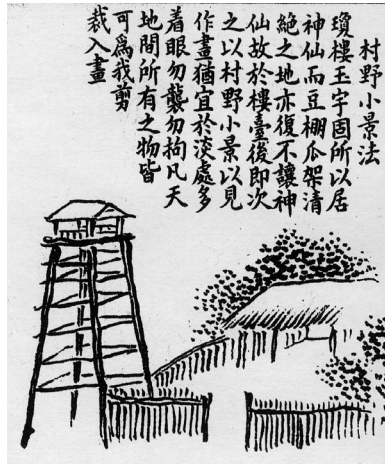 村野小景法
瓊樓玉宇固所以居
神仙而豆棚瓜架清
絕之地亦復不讓神
仙故於樓臺後即次
之以村野小景以見
作畫猶宜於淡處多
着眼勿襲勿拘凡天
地間所有之物皆
可爲我剪
裁入畫